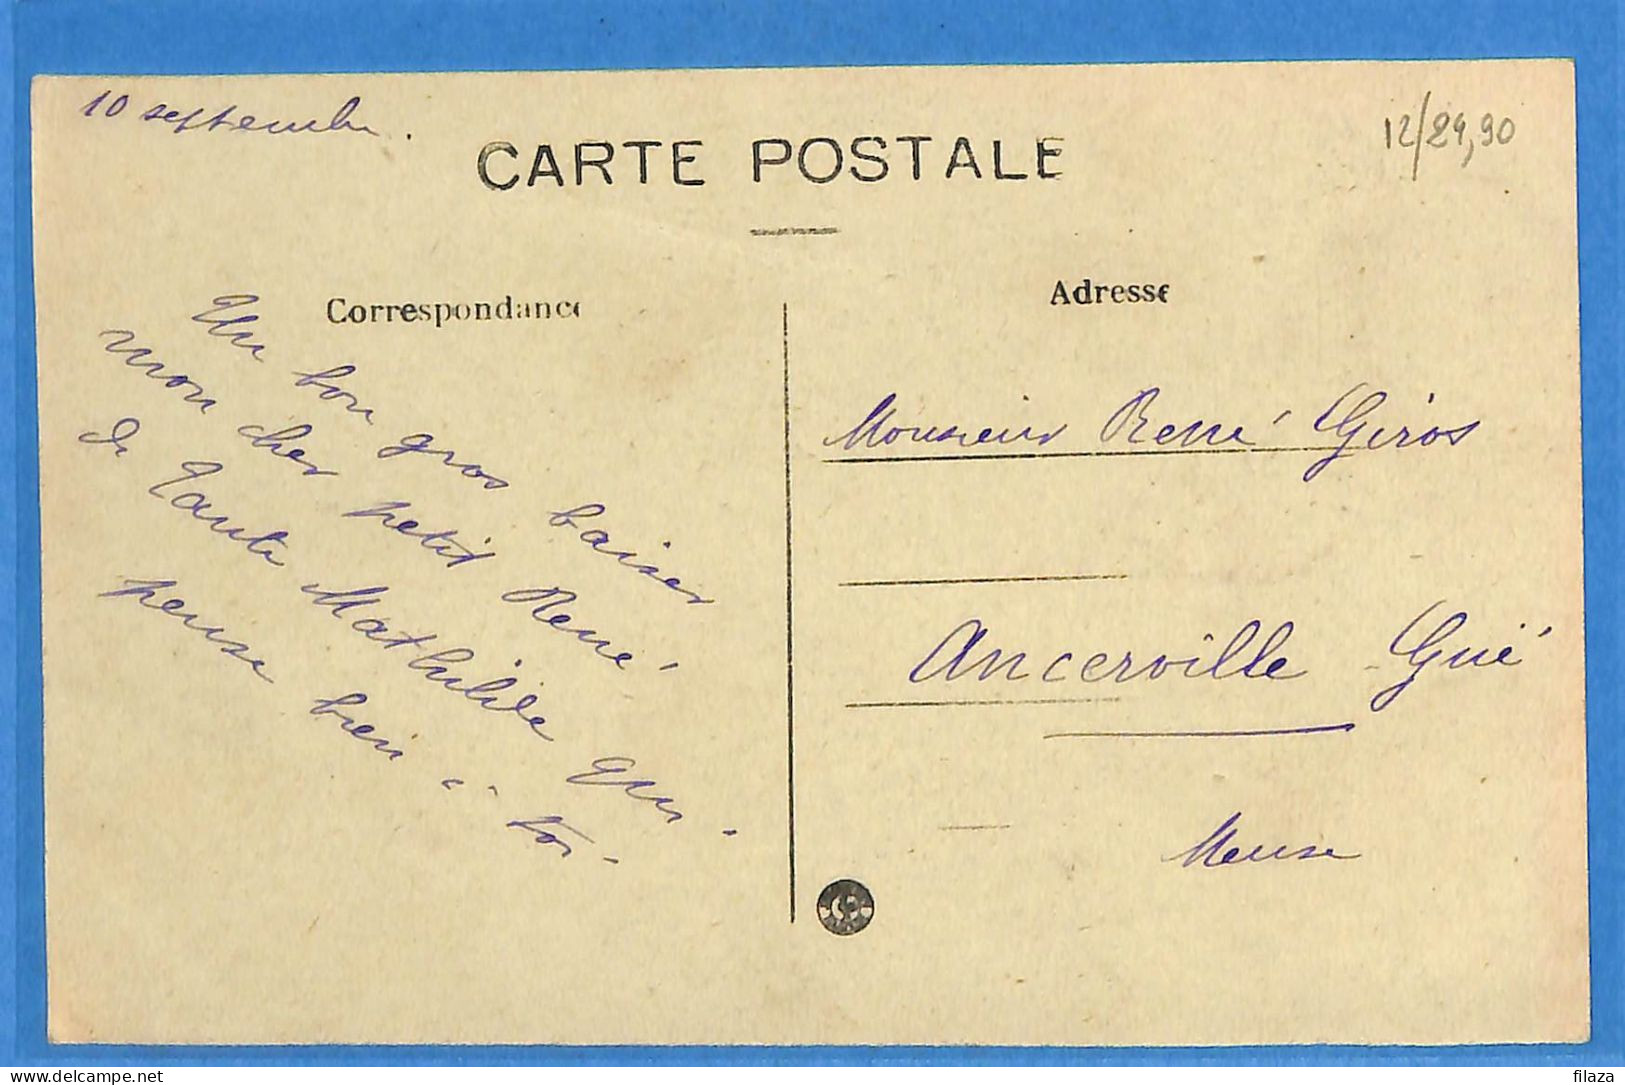 10 septembre.
12/24,90
CARTE POSTALE
Correspondance
Adresse
Un bon gros baiser
mon cher petit René
de Tante Mathilde qui
pense bien à toi.
Monsieur René Giros
Ancerville - Gué
Meuse
filaza